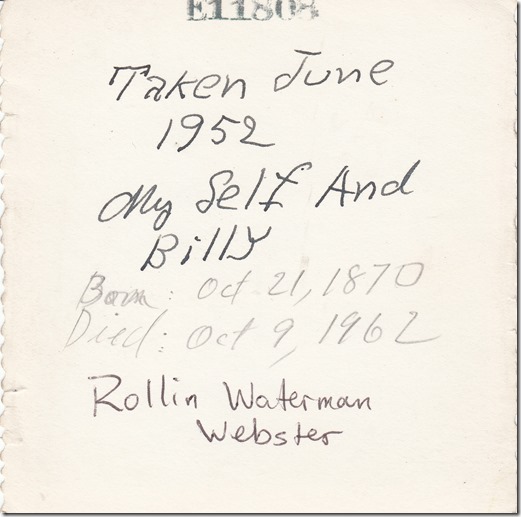 E11808
Taken June
1952
My Self And
Billy
Born: Oct 21, 1870
Died: Oct 9, 1962
Rollin Waterman
Webster